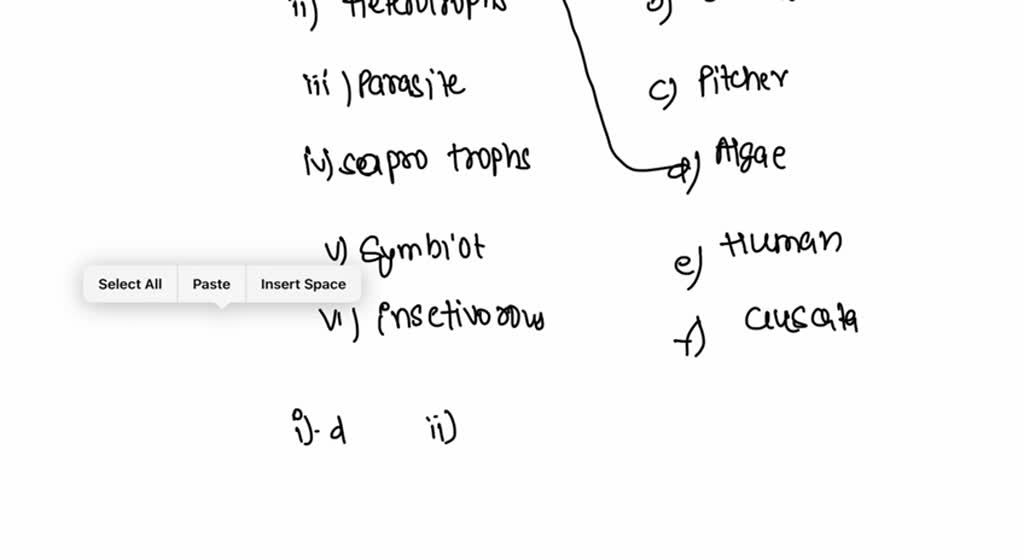 ii) Heterotrophs
b)
iii) Parasite
c) Pitcher
iv) sapro trophs
d) Algae
v) Symbiot
e) Human
Select All Paste Insert Space
vi) insetivorous
f) cuscata
i). d ii)